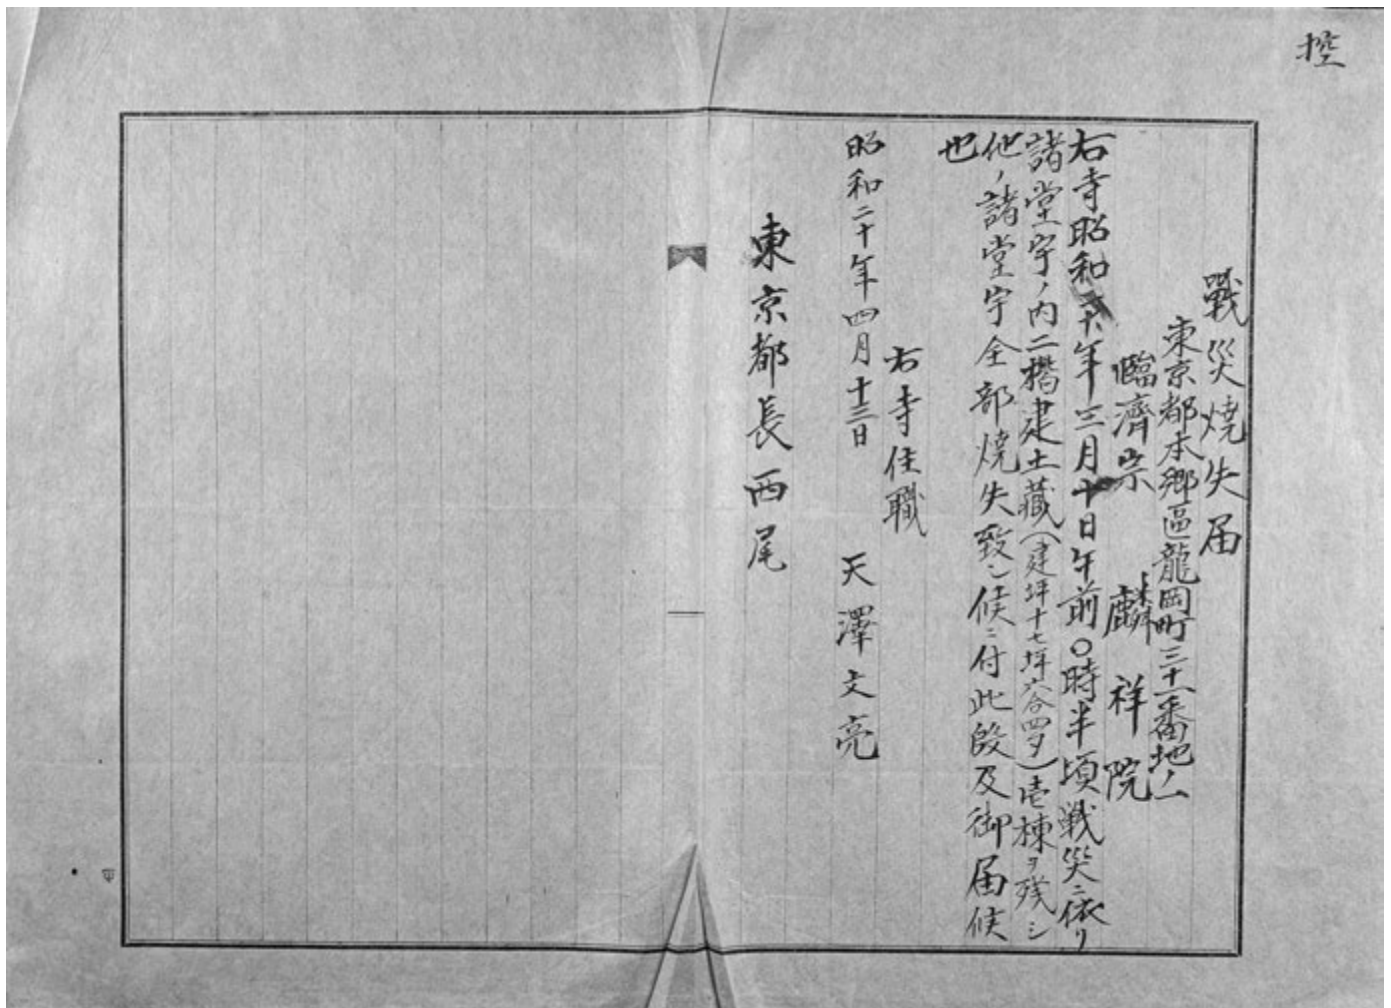 控
戰災燒失届
東京都本郷區龍岡町三十一番地ノ一
臨濟宗 麟祥院
右寺昭和二十年三月十日午前〇時半頃戦災ニ依リ
諸堂宇ノ内二階建土藏(建坪十七坪六合四夕)壱棟ヲ残シ
他ノ諸堂宇全部燒失致シ候ニ付此段及御届候
也
右寺住職
昭和二十年四月十三日 天澤文亮
東京都長西尾